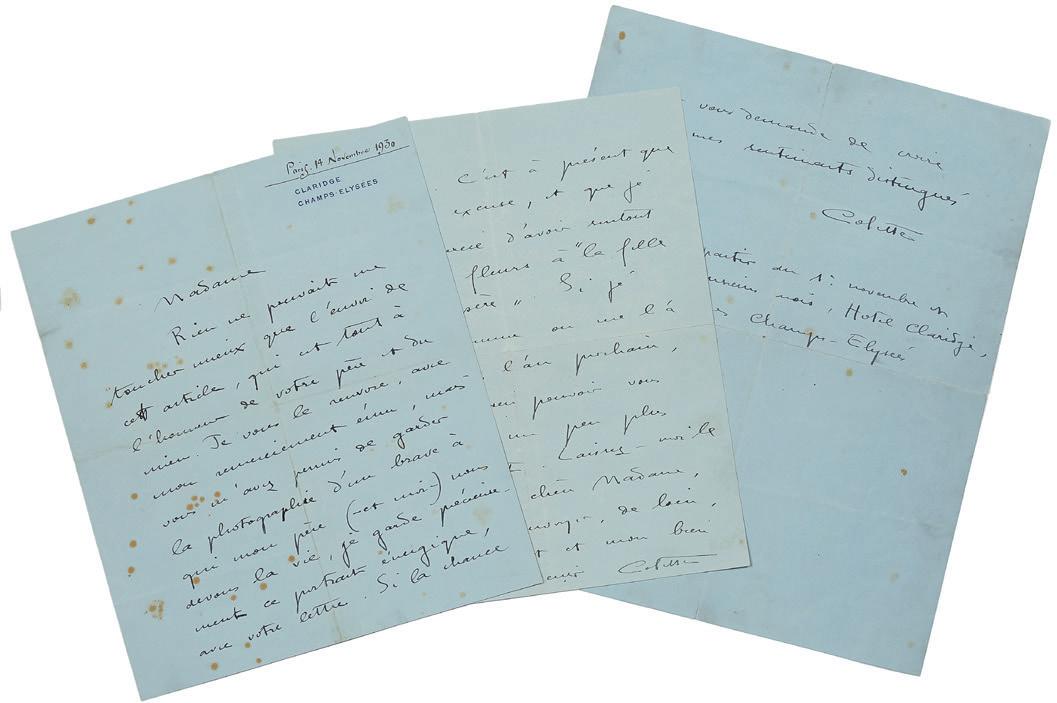 Paris. 14 Novembre 1930
CLARIDGE
CHAMPS-ELYSÉES
Madame
Rien ne pouvait me
toucher mieux que l'envoi de
cet article, qui est tout à
l'honneur de votre père et du
mien. Je vous le renvoie, avec
mon remerciement ému, mais
vous m'avez permis de garder
la photographie d'un brave à
qui mon père (-et moi-) nous
devons la vie, je garde précieuse-
ment ce portrait énergique,
avec votre lettre. Si la chance
C'est à présent que
excuse, et que je
d'avoir surtout
fleurs à "la fille
". Si, je
on me l'a
l'an prochain,
pouvoir vous
un peu plus
. Laissez-moi le
chère Madame,
, de loin,
et mon bien
Colette
vous demande de croire
mes sentiments distingués
Colette
partir du 1er novembre
mois, Hotel Claridge,
Champs-Elysées